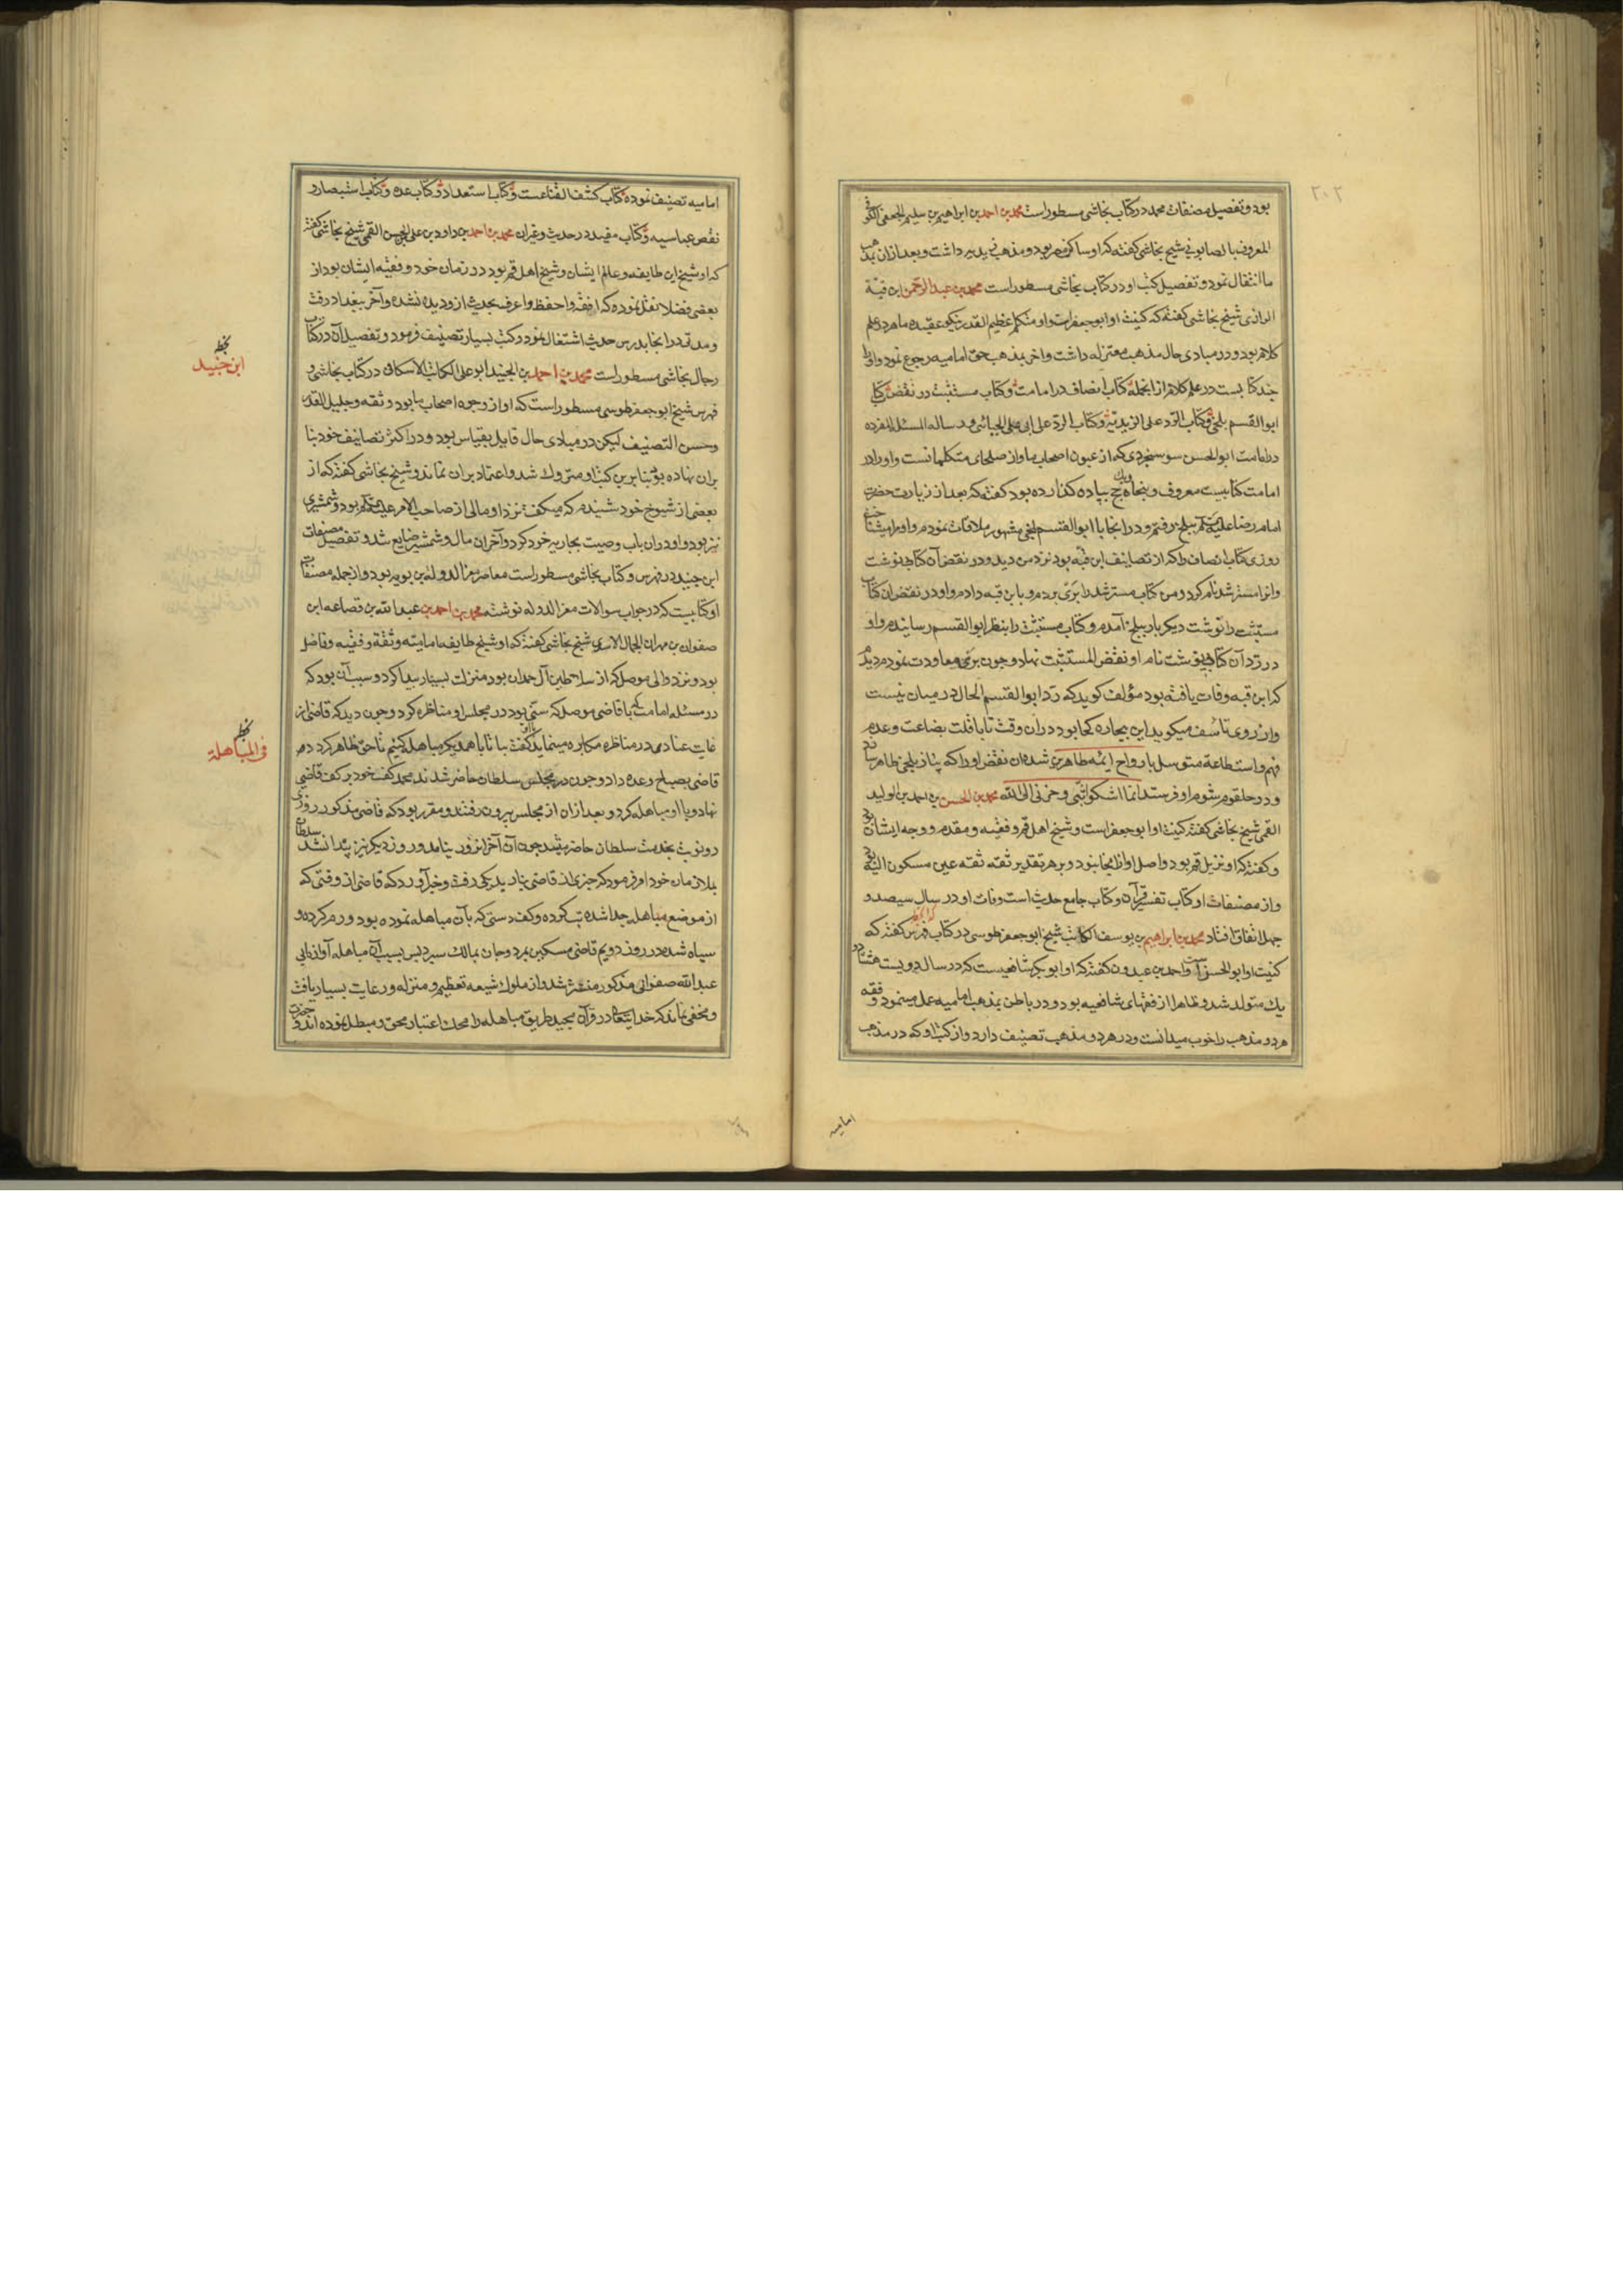 ٢٠٢
بود و تفصیل مصنفات محمد در کتاب نجاشی مسطور است محمد بن احمد بن ابراهیم بن سلیم الجعفی الکوفی
المعروف بالصابونی شیخ نجاشی کفته که او ساکن مصر بود و مذهب زیدیه داشت و بعد از ان بمذهب
ما انتقال نمود و تفصیل کتب او در کتاب نجاشی مسطور است محمد بن عبد الرحمن ابن قبة
الرازی شیخ نجاشی کفته که کنیت او ابو جعفر است و او متکلم عظیم القدر نیکو عقیده ماهر در علم
کلام بود و در مبادی حال مذهب معتزله داشت و اخر بمذهب حق امامیه رجوع نمود و او را
چند کتابست در علم کلام از انجمله کتاب انصاف در امامت و کتاب مستثبت در نقض کتاب
ابو القسم بلخی و کتاب الرد علی الزیدیة و کتاب الرد علی ابی علی الجبائی و رساله المسئله المفرده
در امامت ابو الحسن سوسنجردی که از عیون اصحاب ما و از صلحای متکلمانست و او را در
امامت کتابیست معروف و پنجاه حج پیاده کذارده بود کفته که بعد از زیارت حضرت
امام رضا علیه السلم ببلخ رفتم و در انجا با ابو القسم بلخی مشهور ملاقات نمودم و او مرا میشناخت
روزی کتاب انصاف را که از تصانیف ابن قبه بود نزد من دید و در نقض آن کتابی نوشت
و انرا مسترشد نام کرد و من کتاب مسترشد را بری بردم و بابن قبه دادم و او در نقض ان کتاب
مستثبت را نوشت دیکر بار ببلخ آمدم و کتاب مستثبت را بنظر ابو القسم رسانیدم و او
در رد آن کتابی نوشت نام او نقض المستثبت نهاد و چون بری معاودت نمودم دیدم
که ابن قبه وفات یافته بود مؤلف کوید که رد ابو القسم الحال در میان نیست
و از روی تاسف میکوید این بیچاره کجا بود در ان وقت تا با قلت بضاعت و عدم
فهم و استطاعة متوسل بارواح ائمه طاهرین شده ان نقض او را که
و در حلقوم شوم او فرستد انما اشکوا بثی و حزنی الی الله محمد بن الحسن بن احمد بن الولید
القمی شیخ نجاشی کفته کنیت او ابو جعفر است و شیخ اهل قم و فقیه و مقدم و وجه ایشان بود
و کفته که او نزیل قم بود و اصل او از انجا نبود و بر هر تقدیر ثقه ثقه عین مسکون الیه بود
و از مصنفات او کتاب تفسیر قرآن و کتاب جامع حدیث است وفات او در سال سیصد و
چهل اتفاق افتاد محمد بن ابراهیم بن یوسف الکاتب شیخ ابو جعفر طوسی در کتاب فهرس کفته که
کنیت او ابو الحسن است و احمد بن عبدون کفته که او ابو بکر شافعیست که در سال دویست هشتاد و
یک متولد شد و ظاهرا از فقهای شافعیه بود و در باطن بمذهب امامیه عمل مینمود و فقه
هر دو مذهب را خوب میدانست و در هر دو مذهب تصنیف دارد و از کتب او که در مذهب
امامیه
امامیه تصنیف نموده کتاب کشف القناعست و کتاب استعداد و کتاب عده و کتاب استبصار و
نقض عباسیه و کتاب مفید در حدیث و غیر ان محمد بن احمد بن داود بن علی بن الحسن القمی شیخ نجاشی کفته
که او شیخ این طایفه و عالم ایشان و شیخ اهل قم بود در زمان خود و فقیه ایشان بود از
بعضی فضلا نقل نموده که افقه و احفظ و اعرف بحدیث از و دیده نشده و آخر ببغداد رفت
و مدتی در انجا بدرس حدیث اشتغال نمود و کتب بسیار تصنیف فرمود و تفصیل آن در کتاب
رجال نجاشی مسطور است محمد بن احمد بن الجنید ابو علی الکاتب الاسکافی در کتاب نجاشی و
فهرس شیخ ابو جعفر طوسی مسطور است که او از وجوه اصحاب ما بود و ثقه و جلیل القدر
و حسن التصنیف لیکن در مبادی حال قایل بقیاس بود و در اکثر تصانیف خود بنا
بران نهاده بود بنابرین کتب او متروک شد و اعتماد بران نماند و شیخ نجاشی کفته که از
بعضی از شیوخ خود شنیدم که میکفت نزد او مالی از صاحب الامر علیه السلم بود و شمشیری
نیز بود و او در ان باب وصیت بجاریه خود کرد و آخر ان مال و شمشیر ضایع شد و تفصیل مصنفات
ابن جنید در فهرس و کتاب نجاشی مسطور است معاصر معز الدوله بن بویه بود و از جمله مصنفات
او کتابیست که در جواب سوالات معز الدوله نوشته محمد بن احمد بن عبد الله بن قضاعه ابن
صفوان بن مهران الجمال الاسدی شیخ نجاشی کفته که او شیخ طایفه امامیّه و ثقه و فقیه و فاضل
بود و نزد والی موصل که از سلاطین آل حمدان بود منزلت بسیار پیدا کرد و سبب آن بود که
در مسئله امامت با قاضی موصل که سنی بود در مجلس او مناظره کرد و چون دید که قاضی از
غایت عنادی در مناظره مکابره مینماید کفت بیا تا با همدیکر مباهله کنیم تا حق ظاهر کردد م
قاضی بصباح وعده داد و چون در مجلس سلطان حاضر شدند محمد کف خود بر کف قاضی
نهاد و با او مباهله کرد و بعد از ان از مجلس بیرون رفتند و مقرر بود که قاضی مذکور روزی
دو نوبت بخدمت سلطان حاضر میشد چون آن آخر انروز نیامد و روز دیکر نیز پیدا نشد سلطان
بملازمان خود امر فرمود که خبر قاضی بیارید یکی رفت و خبر آورد که قاضی از وقتی که
از موضع مباهله جدا شده تب کرده و کف دستی که بآن مباهله نموده بود ورم کرده و
سیاه شده در روز دویم قاضی مسکین بمرد و جان بمالک سپرد پس بسبب آن مباهله آوازه ابی
عبد الله صفوانی مذکور منتشر شد و از ملوک شیعه تعظیم و منزله و رعایت بسیار یافت
و مخفی نماند که خدایتعالی در قرآن مجید طریق مباهله را محک اعتبار محق و مبطل نموده اند و
ابن جنید
فی المباهلة